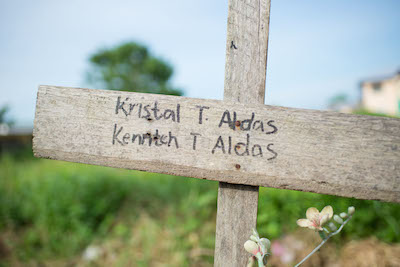 Kristal T. Aldas
Kenneth T Aldas